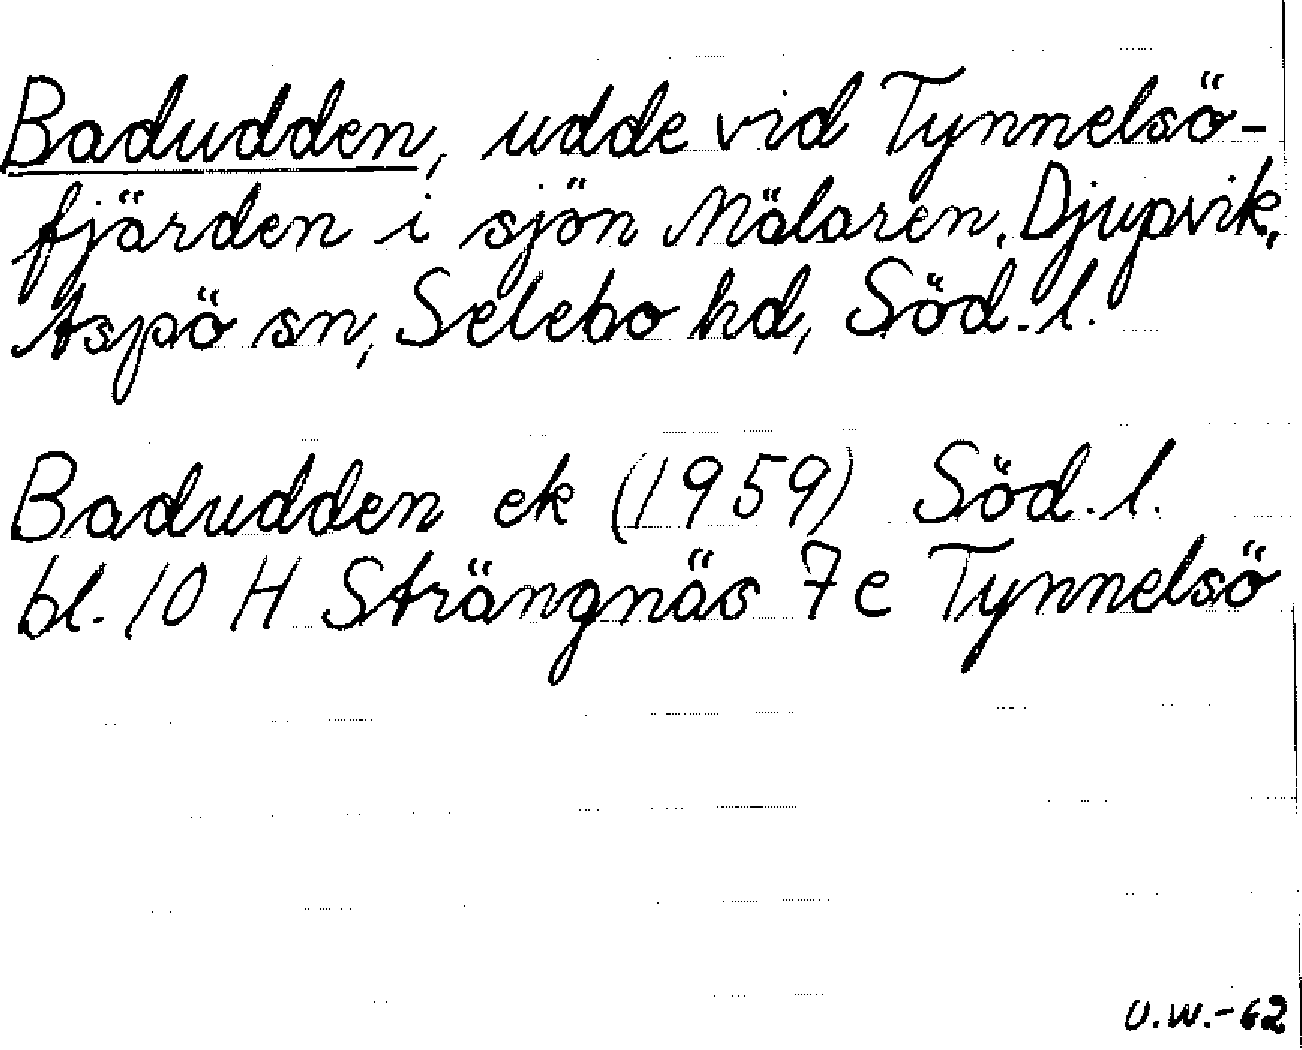 Badudden, udde vid Tynnelsö-
fjärden i sjön Mälaren. Djupvik,
Aspö sn, Selebo hd, Söd. l.
Badudden ek (1959) Söd. l.
bl. 10 H Strängnäs 7 e Tynnelsö
U.W.-62